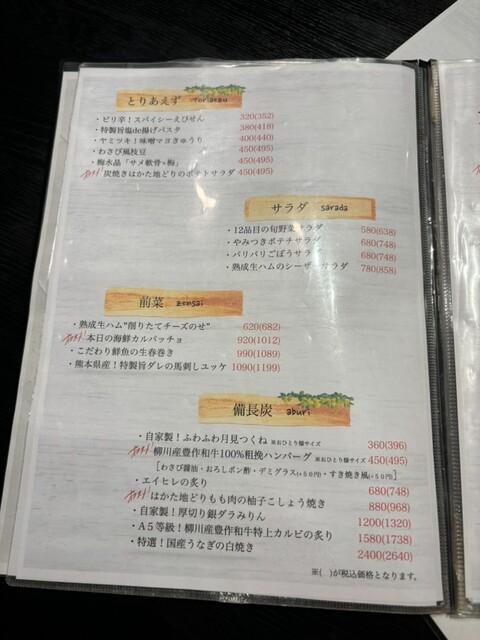 とりあえず toriaezu
・ピリ辛！スパイシーえびせん 320(352)
・特製旨塩de揚げパスタ 380(418)
・ヤミツキ！味噌マヨきゅうり 400(440)
・わさび風枝豆 450(495)
・梅水晶「サメ軟骨×梅」 450(495)
・炭焼きはかた地どりのポテトサラダ 450(495)
サラダ sarada
・12品目の旬野菜サラダ 580(638)
・やみつきポテチサラダ 680(748)
・パリパリごぼうサラダ 680(748)
・熟成生ハムのシーザーサラダ 780(858)
前菜 zensai
・熟成生ハム"削りたてチーズのせ" 620(682)
・本日の海鮮カルパッチョ 920(1012)
・こだわり鮮魚の生春巻き 990(1089)
・熊本県産！特製旨ダレの馬刺しユッケ 1090(1199)
備長炭 aburi
・自家製！ふわふわ月見つくね ※おひとり様サイズ 360(396)
・柳川産豊作和牛100%粗挽ハンバーグ ※おひとり様サイズ 450(495)
［わさび醤油・おろしポン酢・デミグラス(+50円)・すき焼き風(+50円)］
・エイヒレの炙り 680(748)
・はかた地どりもも肉の柚子こしょう焼き 880(968)
・自家製！厚切り銀ダラみりん 1200(1320)
・A5等級！柳川産豊作和牛特上カルビの炙り 1580(1738)
・特選！国産うなぎの白焼き 2400(2640)
※( )が税込価格となります。